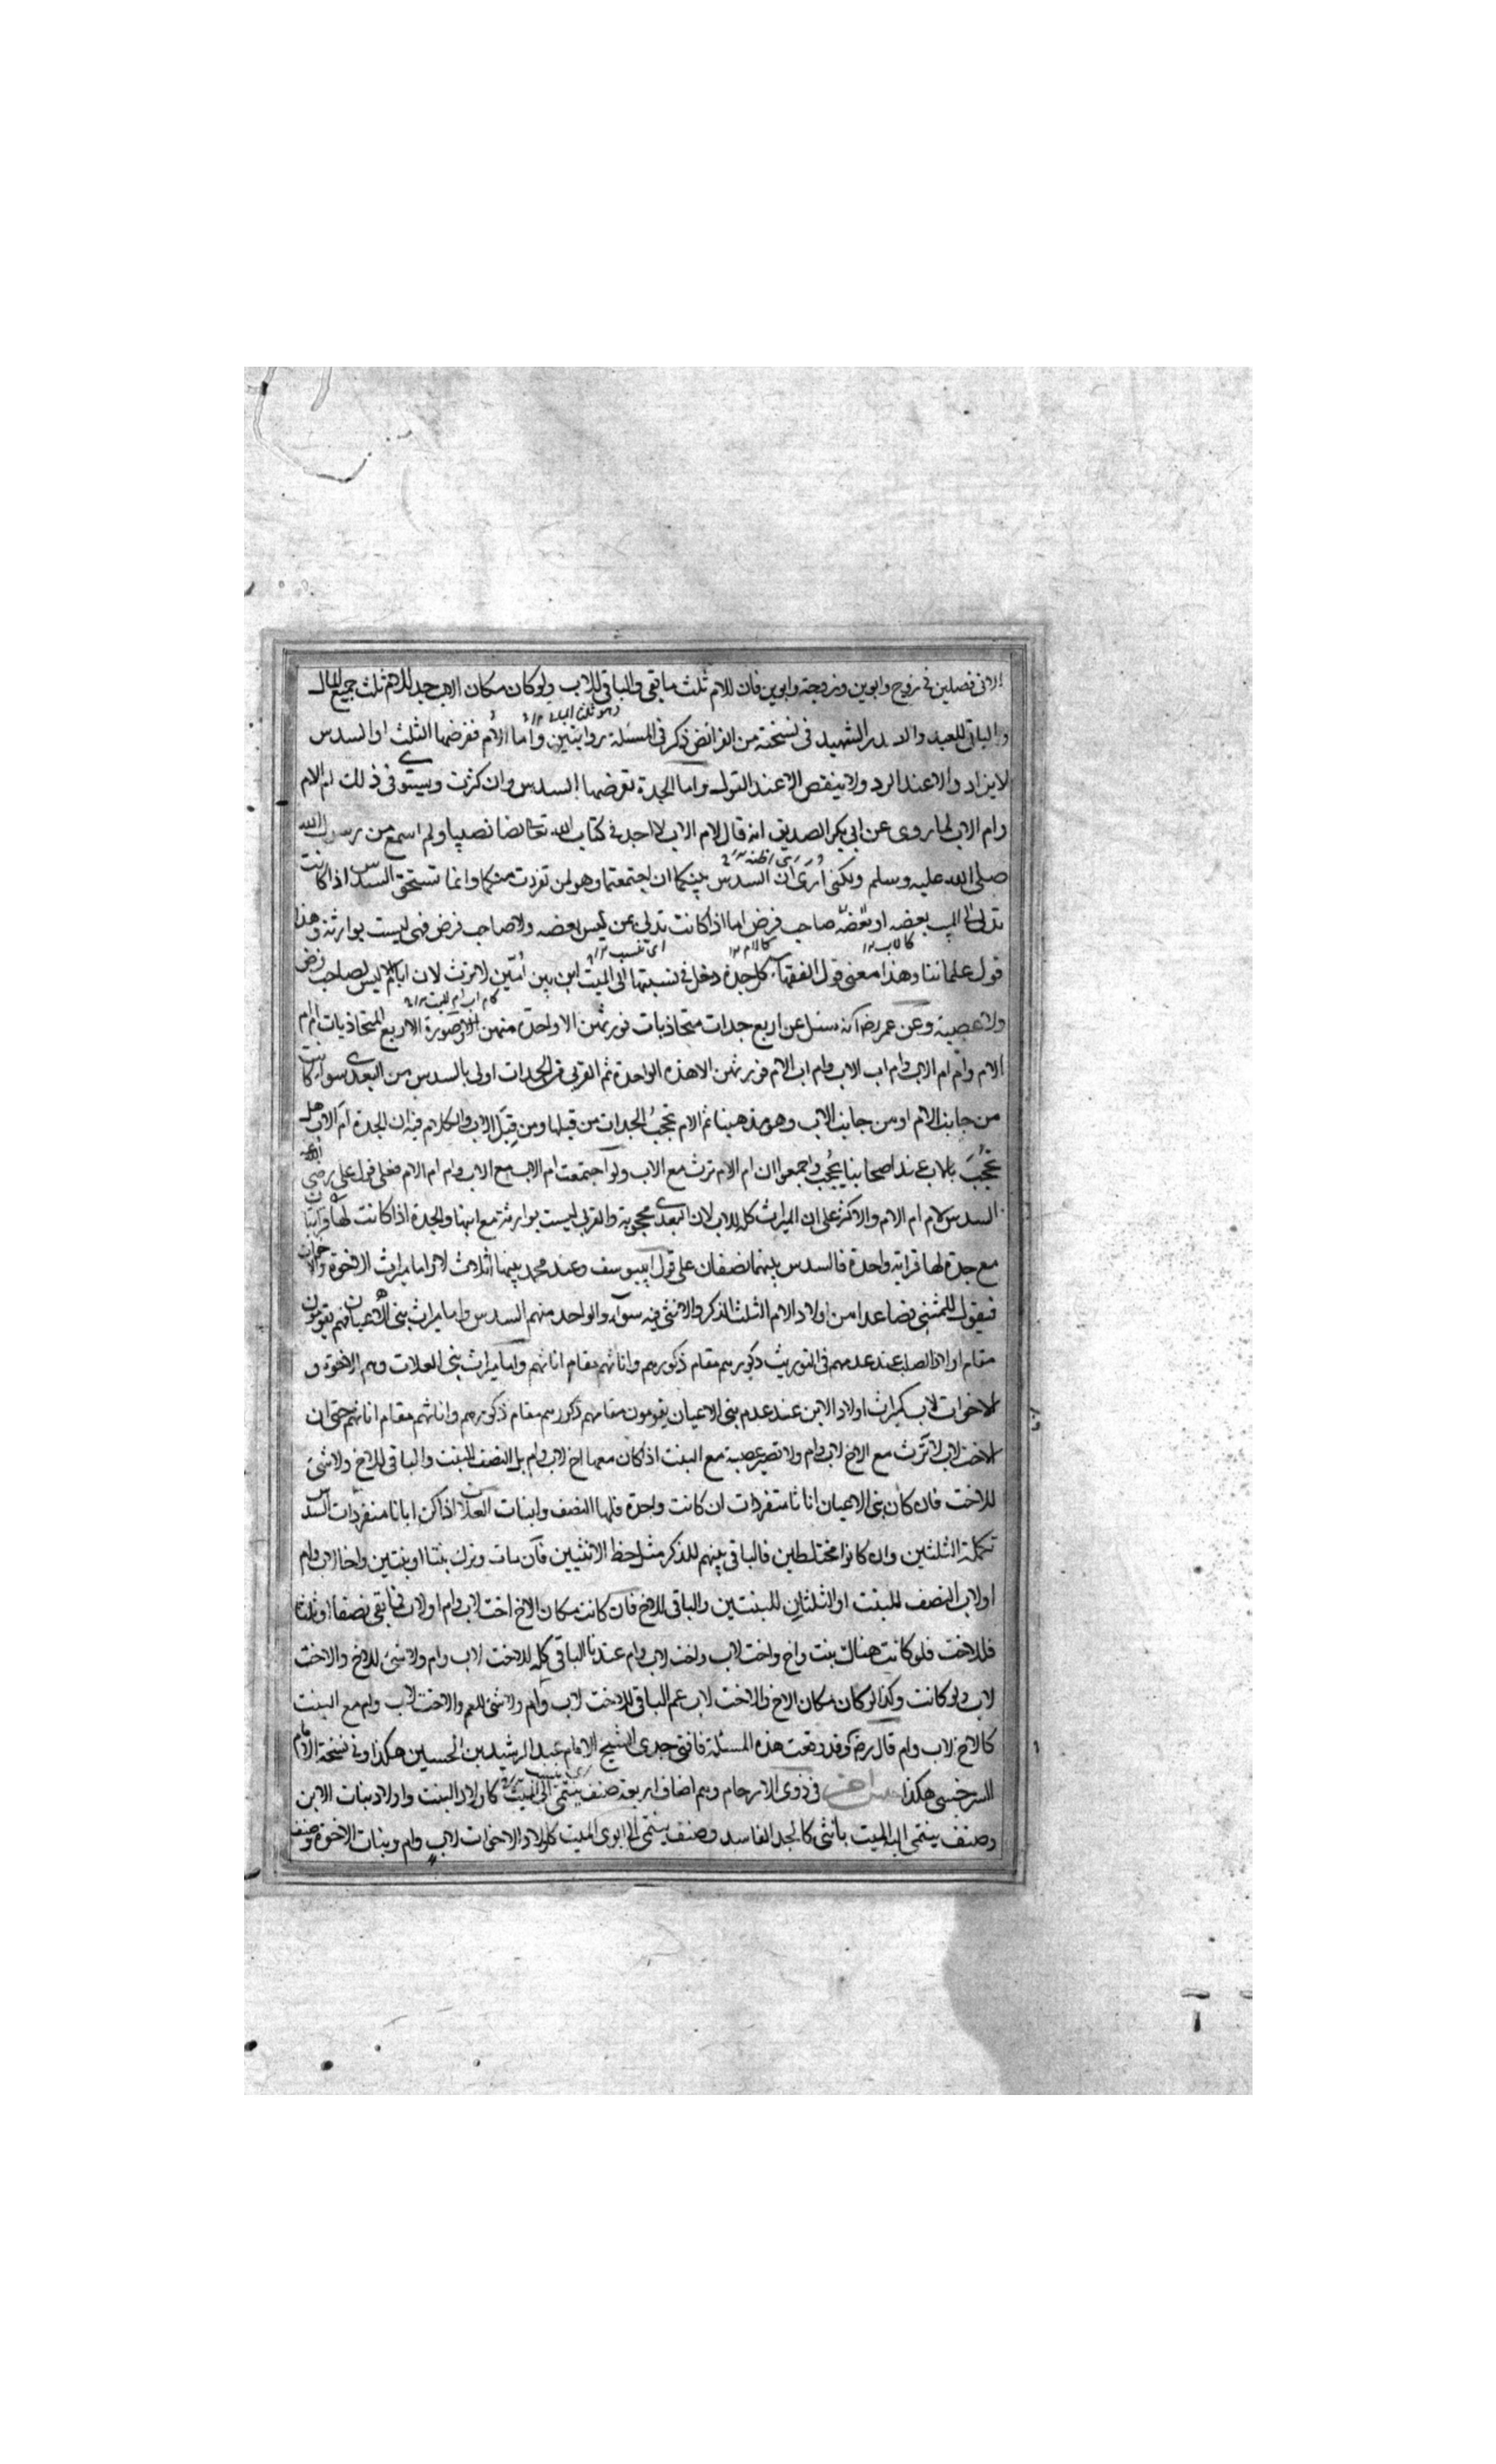 الا فى فصلين فى زوج وابوين وزوجة وابوين فان للام ثلث ما بقى والباقى للاب ولو كان مكان الاب جد للام ثلث جميع المال
والباقى للجد والصدر الشهيد فى نسخته من الفرائض ذكر فى المسئلة روايتين واما الام ففرضها الثلث او السدس
لا يزاد الا عند الرد ولا ينقص الا عند العول واما الجدة ففرضها السدس وان كثرت ويستوى فى ذلك ام الام
وام الاب لما روى عن ابى بكر الصديق انه قال لام الاب لا اجد فى كتاب الله تعالى نصيبا ولم اسمع من رسول الله
صلى الله عليه وسلم ولكنى ارى ان السدس بينكما ان اجتمعتما وهو لمن تفردت منكما وانما تستحق السدس اذا كانت
تدلى الى الميت بعصبة او صاحب فرض اما اذا كانت تدلى بمن ليس بعصبة ولا صاحب فرض فهى ليست بوارثة وهذا
قول علمائنا وهذا معنى قول الفقهاء كل جدة دخل فى نسبتها الى الميت اب بين امين لا ترث لان اب الام ليس بصاحب فرض
ولا عصبة وعن عمر رض انه سئل عن اربع جدات متحاذيات فورثهن الا واحدة منهن وصورة الاربع المتحاذيات ام ام
الام وام ام الاب وام اب الاب وام اب الام فورثهن الا هذه الواحدة ثم القربى من الجدات اولى بالسدس من البعدى سواء كانت
من جانب الام او من جانب الاب وهو مذهبنا ثم الام تحجب الجدات من قبلها ومن قبل الاب والكلام فيه ان الجدة ام الاب هل
تحجب بالاب عند اصحابنا يحجب واجمعوا ان ام الام ترث مع الاب ولو اجتمعت ام الاب مع الاب وام ام الام فعلى قول على رضى الله عنه
السدس لام ام الام والاكثر على ان الميراث كله للاب لان البعدى محجوبة والقربى ليست بوارثة مع ابنها والجدة اذا كانت لها قرابتان
مع جدة لها قرابة واحدة فالسدس بينهما نصفان على قول ابى يوسف وعند محمد بينهما اثلاث لا واما ميراث الاخوة والاخوات
فنقول للمثنى فصاعدا من اولاد الام الثلث الذكر والانثى فيه سواء والواحد منهم السدس واما ميراث بنى الاعيان فهم يقومون
مقام اولاد الصلب عند عدمهم فى التوريث ذكورهم مقام ذكورهم واناثهم مقام اناثهم واما ميراث بنى العلات وهم الاخوة و
الاخوات لاب كميراث اولاد الابن عند عدم بنى الاعيان يقومون مقامهم ذكورهم مقام ذكورهم واناثهم مقام اناثهم حتى ان
الاخت لاب لا ترث مع الاخ لاب وام ولا تصير عصبة مع البنت اذا كان معها اخ لاب وام بل النصف للبنت والباقى للاخ ولا شئ
للاخت فان كان بنى الاعيان اناثا منفردات ان كانت واحدة فلها النصف ولبنات العلات اذا كن اناثا منفردات السدس
تكملة الثلثين وان كانوا مختلطين فالباقى بينهم للذكر مثل حظ الانثيين فان مات وترك بنتا او بنتين واخا لاب وام
او لاب النصف للبنت او الثلثان للبنتين والباقى للاخ فان كانت مكان الاخ اخت لاب وام او لاب فما بقى نصفا او ثلثا
فللاخت فلو كانت هناك بنت واخ واخت لاب واخت لاب وام عندنا الباقى كله للاخت لاب وام ولا شئ للاخ والاخت
لاب ولو كانت وكذا لو كان مكان الاخ والاخت لاب عم الباقى للاخت لاب وام ولا شئ للعم والاخت لاب وام مع البنت
كالاخ لاب وام قال رض وقد وقعت هذه المسئلة فافتى جدى الشيخ الامام عبد الرشيد بن الحسين هكذا وفى نسخة الامام
السرخسى هكذا جنس اخر فى ذوى الارحام وهم اصناف اربعة صنف ينتمى الى الميت كاولاد البنت واولاد بنات الابن
وصنف ينتمى اليه الميت بانثى كالجد الفاسد وصنف ينتمى الى ابوى الميت كاولاد الاخوات لاب وام وبنات الاخوة وصنف